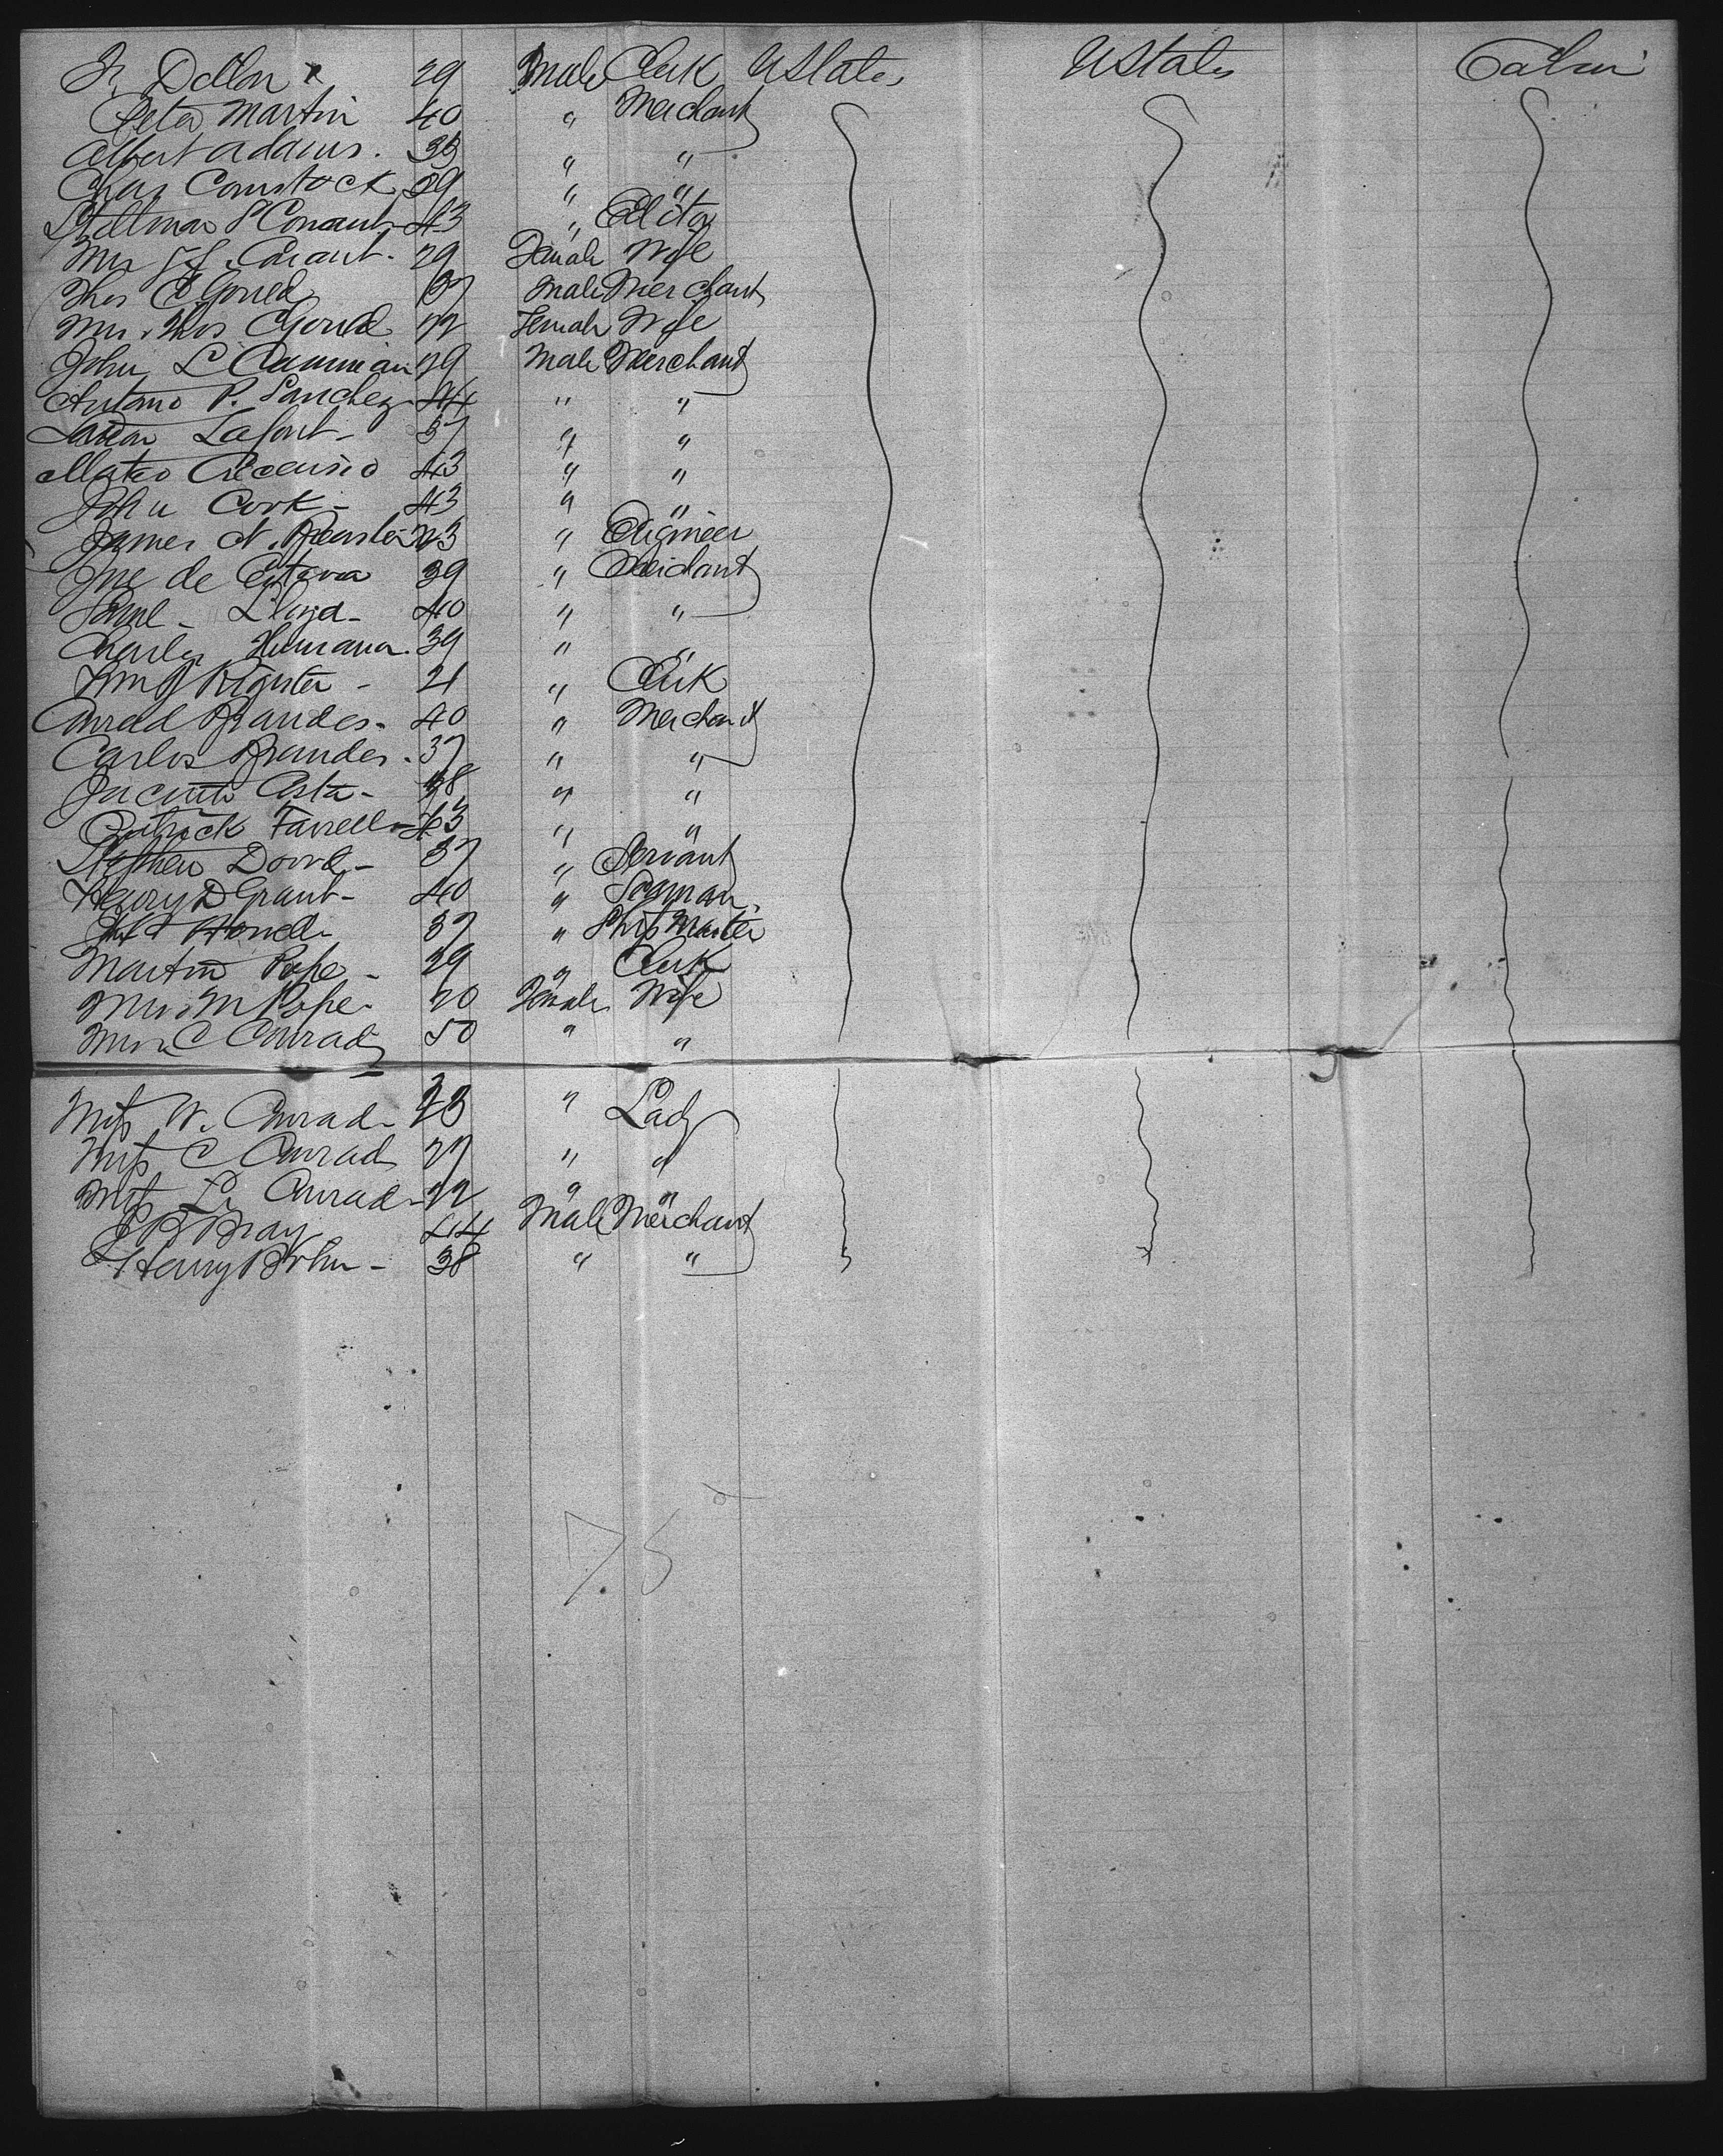 Fr. Dillon x 29 Male Clerk UStates UStates Cabin
Peter Martin 40 " Merchant
Albert Adams. 35 " "
Chas Comstock 29 " "
Stillman S Conant 43 " Editor
Mrs S S. Conant. 29 Female Wife
Thos C Gould 37 Male Merchant
Mrs. Thos Gould 22 Female Wife
John L 29 Male Merchant
Antonio P. Sanchez 44 " "
Lafont - 37 " "
Mateo 43 " "
John Cork - 43 " "
James N. 23 " Engineer
Jne de 39 " Merchant
Saml - Lloyd - 40 " "
Charles Humana. 39 " "
Righter - 21 " Clerk
Conrad Brandes - 40 " Merchant
Carlos Brandes - 37 " "
Jacinto Costa - 38 " "
Patrick Farrell - 43 " "
Stephen - 37 " Servant
Henry D Grant - 40 " Seaman
Howell - 37 " Ship Master
Martin Pope - 29 " Clerk
Mrs. M Pope - 20 Female Wife
Mrs C Conrad 50 " "
Miss W. Conrad - 23 " Lady
Miss C Conrad 27 " "
Miss L. Conrad - 22 " "
Bray 44 Male Merchant
Henry Bohn - 38 " "
75